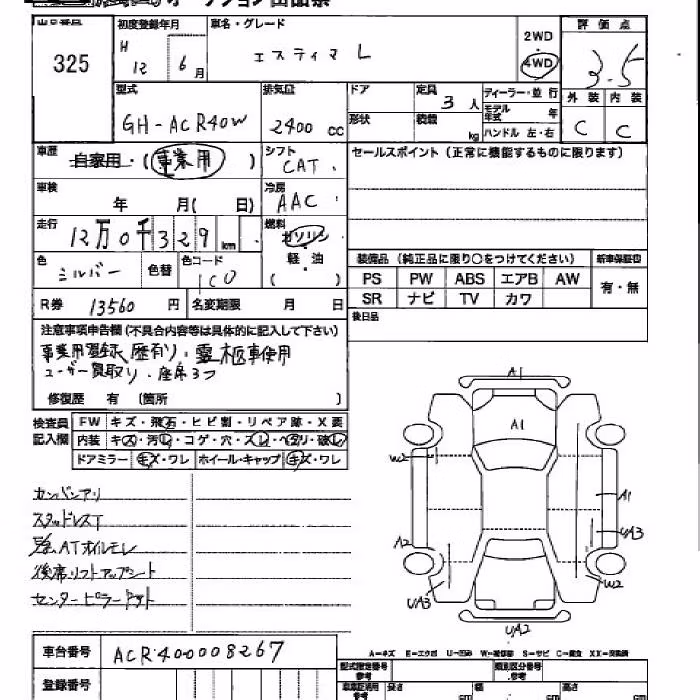 325
初度登録年月
H 12 6月
車名・グレード
エスティマ L
2WD
4WD
評価点
3.5
外装 内装
C C
型式
GH-ACR40W
排気量
2400 cc
ドア
形状
定員
3人
積載
kg
ディーラー・並行
モデル年式 年
ハンドル 左・右
車歴
自家用・(事業用)
シフト
CAT.
セールスポイント(正常に機能するものに限ります)
車検
年 月( 日)
冷房
AAC
走行
12万0千329km
燃料
ガソリン
軽油
( )
色
シルバー
色替
色コード
1C0
装備品(純正品に限り○をつけてください)
新車保証書
PS PW ABS エアB AW
有・無
SR ナビ TV カワ
R券 13560円
名変期限 月 日
後日品
注意事項申告欄(不具合内容等は具体的に記入して下さい)
事業用登録歴有り・霊柩車使用
ユーザー買取り・座席3つ
修復歴 有(箇所 )
検査員
記入欄
FW キズ・飛石・ヒビ割・リペア跡・X要
内装 キズ・汚レ・コゲ・穴・スレ・ヘタリ・破レ
ドアミラー キズ・ワレ ホイール・キャップ キズ・ワレ
カンバンアリ
スタッドレスT
ATオイルモレ
後席リフトアップシート
センターピラー
A1
A1
W2
A1
A2
UA3
W2
UA3
UA2
A-キズ E-エクボ U-凹み W-補修跡 S-サビ C-腐食 XX-交換済
車台番号
ACR400008267
登録番号
型式指定番号
参考
類別区分番号
参考
長さ cm 幅 cm 高さ cm